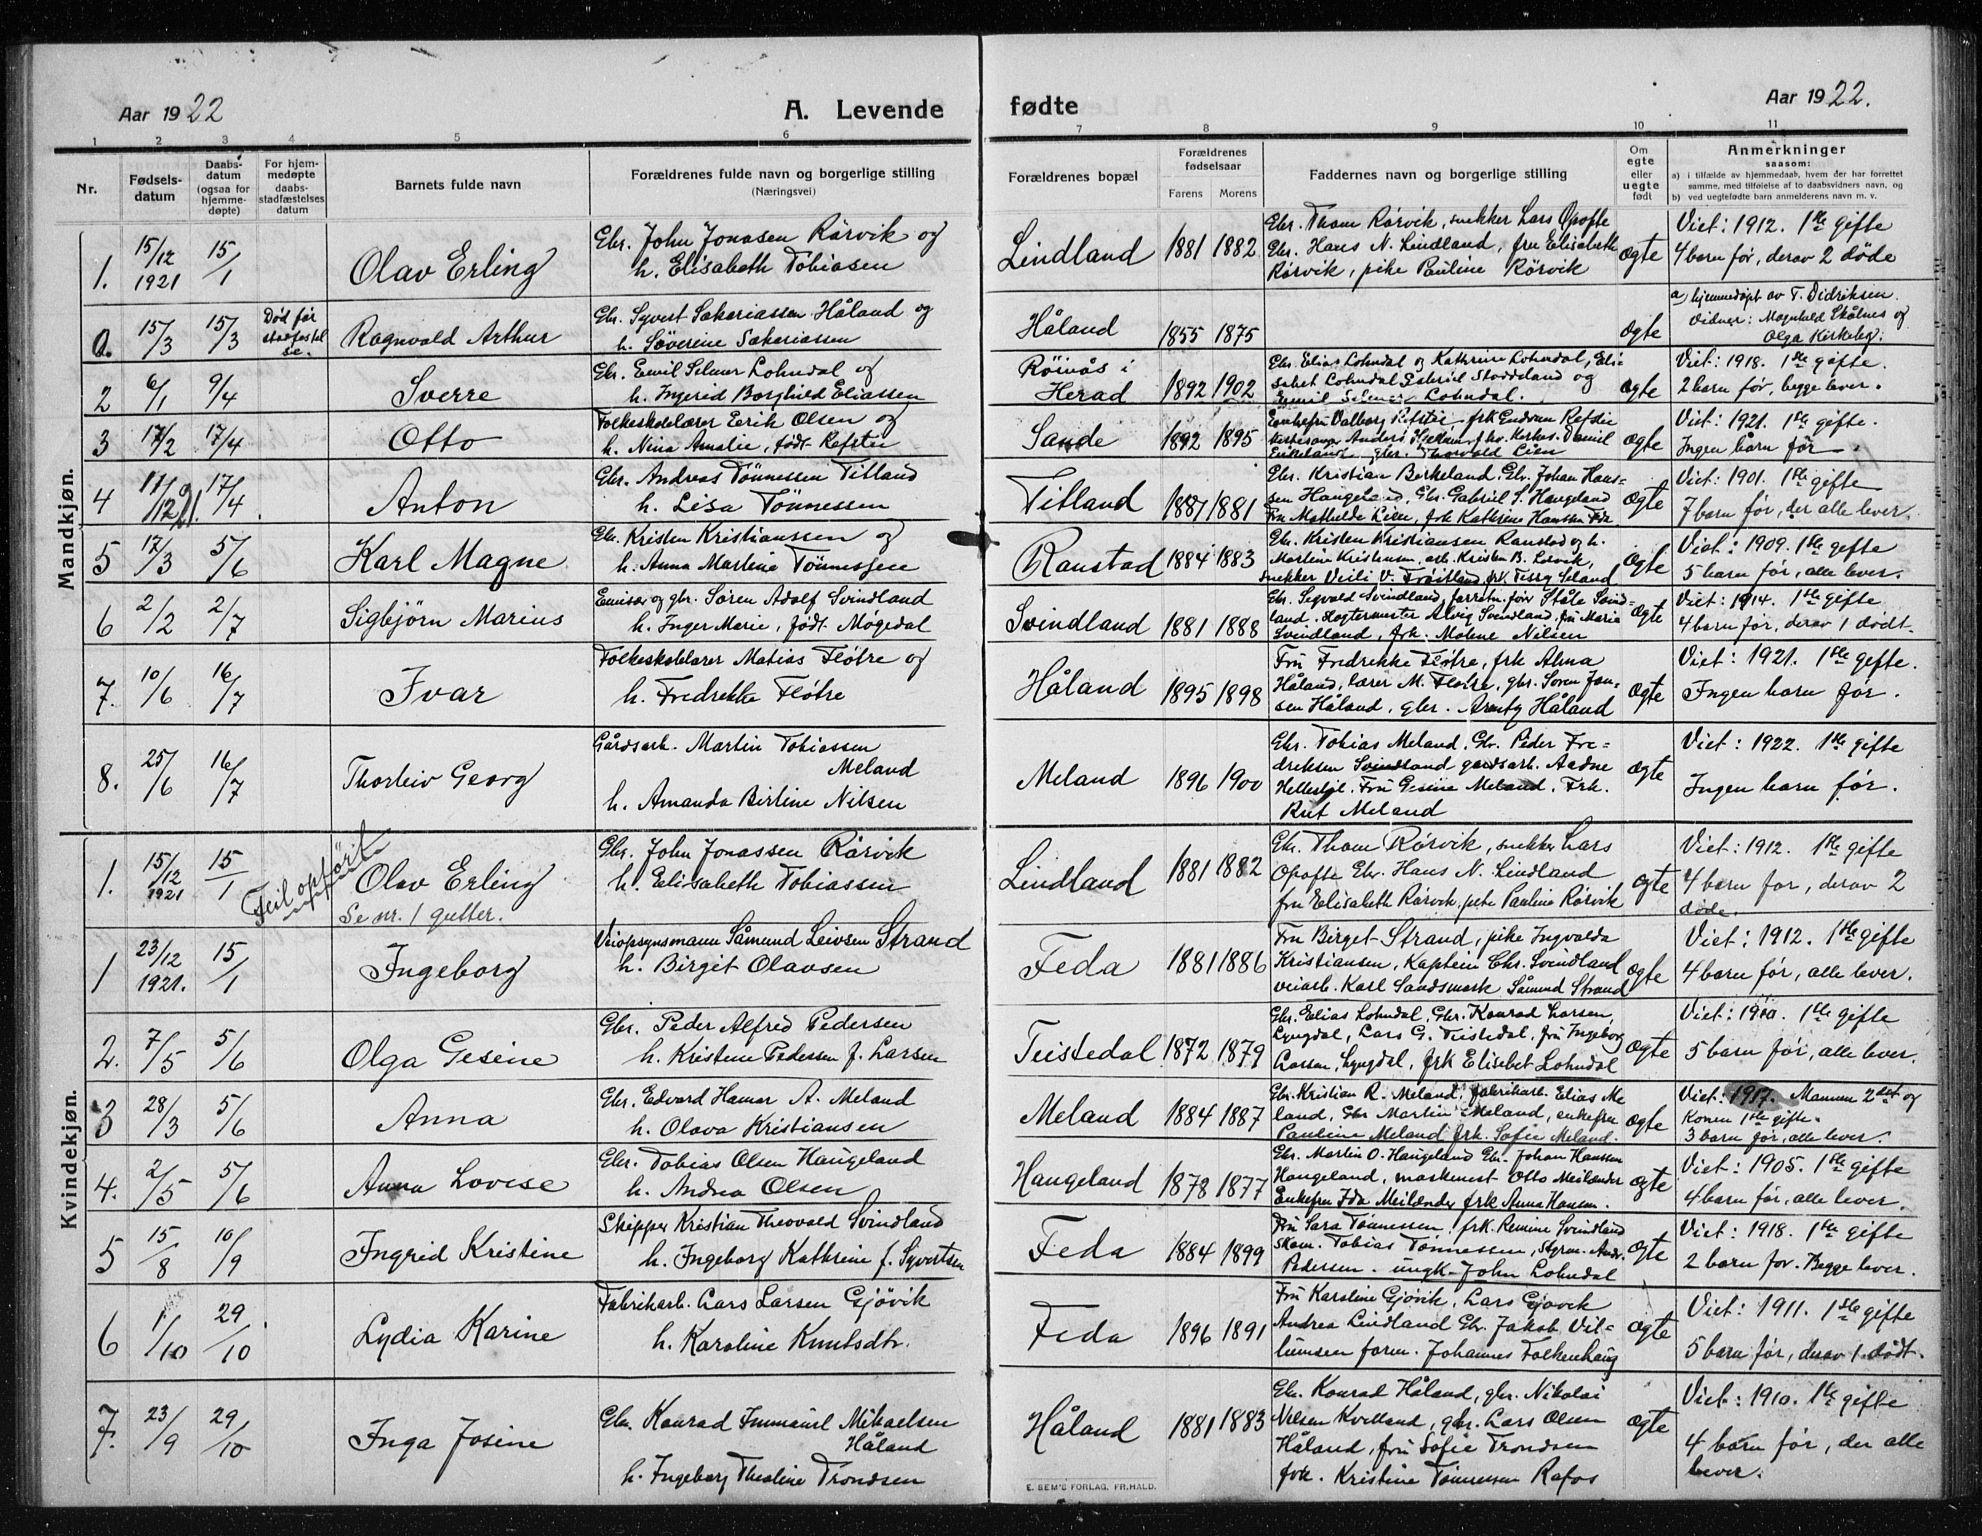 Aar 1922
A. Levende
fødte
Aar 1922.
1 2 3 4 5 6 7 8 9 10 11
Nr.
Fødsels-
datum
Daabs-
datum
(ogsaa for
hjemme-
døpte)
For hjem-
medøpte
daabs-
stadfæstelses
datum
Barnets fulde navn
Forældrenes fulde navn og borgerlige stilling
(Næringsvei)
Forældrenes bopæl
Forældrenes
fødselsaar
Farens Morens
Faddernes navn og borgerlige stilling
Om
egte
eller
uegte
født
Anmerkninger
saasom:
a) i tilfælde av hjemmedaab, hvem der har forrettet
samme, med tilføielse af to daabsvidners navn, og
b) ved uegtefødte barn anmelderens navn m. v.
Mandkjøn.
1. 15/12 1921 15/1 Olav Erling
Gbr. John Jonasen Rörvik og
h. Elisabeth Tobiasen
Lindland 1881 1882
Gbr. Thom Rörvik, snekker Lars Opofte
Gbr. Hans N. Lindland, fru Elisabeth
Rørvik, pike Pauline Rörvik
Ogte
Viet: 1912. 1ste gifte
4 barn før, derav 2 døde
0. 15/3 15/3 Död før
Ragnvald Arthur
Gbr. Syvert Sakariassen Håland og
h. Söverine Sakariassen
Håland 1855 1875
Ogte
a) hjemmedøpt av T. Didriksen.
Vidner: Magnhild Skålnes og
Olga Kirkeby.
2 6/1 9/4 Sverre
Gbr. Emil Selmer Lohndal og
h. Ingerid Borghild Eliassen
Röinås i
Herad 1892 1902
Gbr. Elias Lohndal og Kathrine Lohndal, Eli-
sabet Lohndal Gabriel Stoddeland og
Emil Selmer Lohndal.
Ogte
Viet: 1918. 1ste gifte.
2 barn før, begge lever.
3 17/2 17/4 Otto
Folkeskolelærer Eerik Olsen og
h. Nina Amalie, født Refsti
Sande 1892 1895
Ogte
Viet: 1921. 1ste gifte.
Ingen barn før.
4 11/12 21. 17/4 Anton
Gbr. Andreas Tönnessen Titland
h. Lisa Tönnessen
Titland 1881 1881
Gbr. Kristian Birkeland, Gbr. Johan Hans-
sen Haugeland, Gbr. Gabriel S. Haugeland
Fru Mathilde Lien, frk Kathrine Hanssen Fda
Ogte
Viet: 1901. 1ste gifte
7 barn før, der alle lever.
5 17/3 5/6 Karl Magne
Gbr. Kristen Kristianssen og
h. Anna Martine Tönnesjen
Ranstad 1884 1883
Gbr. Kristen Kristiansen Ranstad og h.
Martine Kristensen, arb. Kristen B. Lervik,
snekker Veili V. Fröitland, frk Tissy Seland
Ogte
Viet: 1909. 1ste gifte
5 barn før, alle lever.
6 2/2 2/7 Sigbjörn Marius
Emisær og gbr. Sören Adolf Svindland
h. Inger Marie, født Møgedal
Svindland 1881 1888
Gbr. Sigvald Svindland, forretn.før Ståle Svind-
land, Alvig Svindland, fru Maria
Svindland, frk. Malene Nilsen
Ogte
Viet: 1914. 1ste gifte.
4 barn før, derav 1 dødt.
7. 10/6 16/7 Ivar
Folkeskolelærer Matias Fløtre og
h. Fredrekke Fløtre
Håland 1895 1898
Fru Fredrekke Fløtre, frk Alma
Håland, lærer M. Fløtre, gbr. Soren Jon-
sen Håland, gbr. Arnty Håland
Ogte
Viet: 1921. 1ste gifte.
Ingen barn før.
8. 25/6 16/7 Thorleiv Georg
Gårdsarb. Martin Tobiassen
Meland
h. Amanda Birtine Nilsen
Meland 1896 1900
Gbr. Tobias Meland, Gbr. Peder Fre-
driksen Svindland gardsarb. Aadne
Fru Gesine Meland, Frk.
Rut Meland
Ogte
Viet: 1922. 1ste gifte
Ingen barn før.
Kvindekjøn.
1. 15/12 1921 15/1 Feil opført
Olav Erling
Se nr. 1 gutter.
Gbr. John Jonassen Rörvik
h. Elisabeth Tobiassen
Lindland 1881 1882
Gbr. Thom Rörvik, snekker Lars
Opofte Gbr. Hans N. Lindland
fru Elisabeth Rørvik, pike Pauline Rörvik
Ogte
Viet: 1912. 1ste gifte
4 barn før, derav 2
døde.
1 23/12 1921. 15/1 Ingeborg
Veiopsynsmann Såmund Leivsen Strand
h. Birgit Olavsen
Feda 1881 1886
Fru Birget Strand, pike Ingvalda
Kristiansen, Kaptein Chr. Svindland
veiarb. Karl Sandsmark Såmund Strand
Ogte
Viet: 1912. 1ste gifte
4 barn før, alle lever.
2. 7/5 5/6 Olga Gesine
Gbr. Peder Alfred Pedersen
h. Kristine Pedersen f. Larsen
Teistedal 1872 1879
Gbr. Elias Lohndal, Gbr. Konrad Larsen
Lyngdal, Lars G. Teistedal, fru Ingeborg
Larsen, Lyngdal, frk Elisebet Lohndal
Ogte
Viet: 1910. 1ste gifte
5 barn før, alle lever.
3 28/3 5/6 Anna
Gbr. Edvard Hamar A. Meland
h. Olava Kristiansen
Meland 1884 1887
Gbr. Kristian R. Meland, fabrikarb. Elias Me
land, Gbr Martin Meland, enkefru
Pauline Meland, frk. Sofie Meland.
Ogte
Viet: 1917. Mannen 2det og
Konen 1ste gifte.
3 barn før, alle lever.
4. 2/5 5/6 Anna Lovise
Gbr. Tobias Olsen Haugeland
h. Andrea Olsen
Haugeland 1878 1877
Gbr. Martin O. Haugeland Gbr. Johan Hanssen
Haugeland, maskinest Otto Meilænder
Enkefru Ida Meilænder frk Anna Hansen.
Ogte
Viet: 1905. 1ste gifte
4 barn før, alle lever.
5 15/8 10/9 Ingrid Kristine
Skipper Kristian Theovald Svindland
h. Ingeborg Kathrine f. Syvertsen
Feda 1884 1899
Fru Sara Tönnessen, frk. Remine Svindland
Skom. Tobias Tönnessen, Styrm. Andr.
Pedersen. ungk. John Lohndal
Ogte
Viet: 1918. 1ste gifte
2 barn for. Begge lever.
6 1/10 29/10 Lydia Karine
Fabrikarb. Lars Larsen Gjövik
h. Karoline Knutsdtr.
Feda 1896 1891
Fru Karoline Gjövik, Lars Gjövik
Andrea Lindland Gbr. Jakob Vil-
lumsen form. Johannes Falkenhaug
Ogte
Viet: 1911. 1ste gifte
5 barn før, derav 1 dødt.
7. 23/9 29/10 Inga Josine
Gbr. Konrad Immanuel Mikaelsen
Håland
h. Ingeborg Theoline Trondsen
Håland 1881 1883
Gbr. Konrad Håland, gbr. Nikolai
Nilsen Kvitland, gbr. Lars Olsen
Håland, fru Sofie Trondsen
frk. Kristine Tönnessen Rafos
Ogte
Viet: 1910. 1ste gifte
4 barn før, der alle
lever.
E. SEM'S FORLAG, FR.HALD.